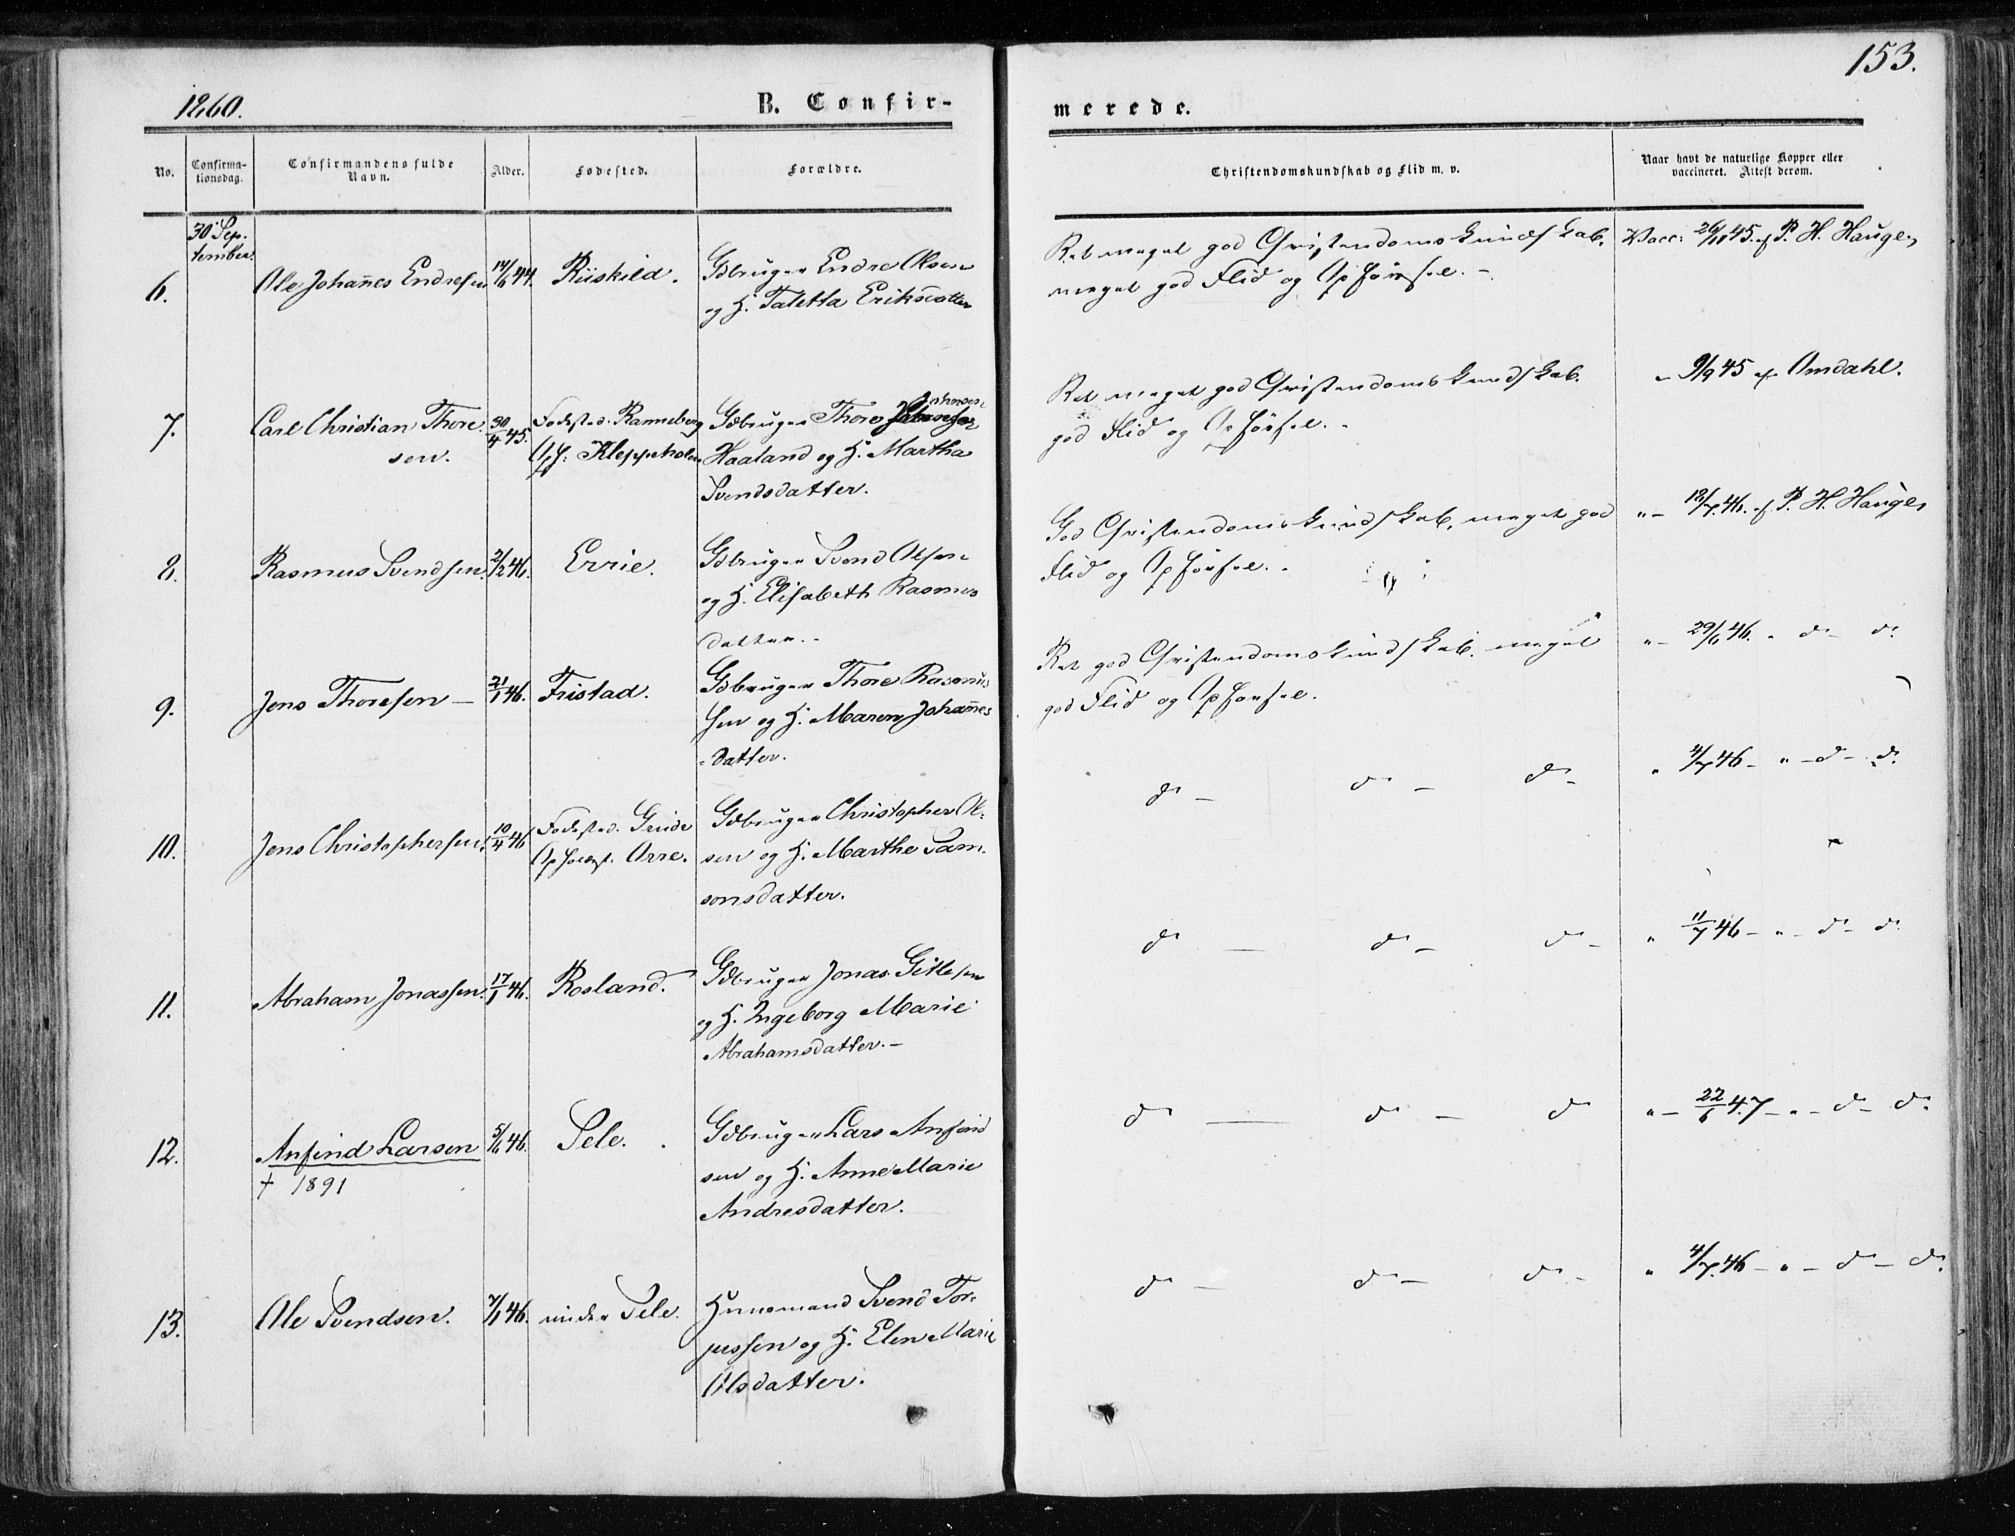 153.
1860.
B. Confir-
merede.
No.
Confirma-
tionsdag.
Confirmandens fulde
Navn.
Alder.
Fødested.
Forældre.
Christendomskundskab og Flid m. v.
Naar havt de naturlige Kopper eller
vaccineret. Attest derom.
30 Sep-
tember.
6.
Ole Johannes Endresen
44.
Riiskild.
Gdbruger Endre Olsen
og H. Taletta Eriksdatter
Ret meget god Christendomskundskab,
meget god Flid og Opførsel. -
Vacc: 26/11 45. af P. H. Hauge,
7.
Carl Christian Thore-
sen.
30/4 45.
Fødested. Ranneberg
Opf: Klepheholen
Gdbruger Thore
Haaland og H. Martha
Svendsdatter.
Ret meget god Christendomskundskab.
god Flid og Opførsel. -
" 9/9 45 af Omdahl.
8.
Rasmus Svendsen.
2/2 46.
Errie.
Gdbruger Svend Olsen
og H. Elisabeth Rasmus
datter. -
God Christendomskundskab, meget god
Flid og Opførsel. -
" - 18/7. 46. af P. H. Hauge,
9.
Jens Thoresen -
21/1 46.
Fristad.
Gdbruger Thore Rasmus
sen og H. Maren Johannes
-datter.
Ret god Christendomskundskab. meget
god Flid og Opførsel.
" - 29/6 46. " do - do.
10.
Jens Christophersen.
10/4 46
Fødested. Grude
Opfostr. Orre.
Gdbruger Christopher Ol-
sen og H. Marthe Sam-
sonsdatter.
do - do - do -
" 4/7 46 - " - do - do.
11.
Abraham Jonassen.
17/1 46.
Rosland.
Gdbruger Jonas Gitlesen
og H. Ingeborg Marie
Abrahamsdatter. -
do - do - do -
" 11/7 46 - " - do - do.
12.
Anfind Larsen
† 1891
5/6 46.
Sele.
Gdbruger Lars Anfind
sen og H. Anne Marie
Andresdatter.
do - do - do
" - 22/6 47 - " - do - do.
13.
Ole Svendsen.
7/1 46.
under Sele.
Huusmand Svend Tor-
jussen og H. Elen Marie
Olsdatter.
do - do - do -
" 4/7. 46 - " - do - do.